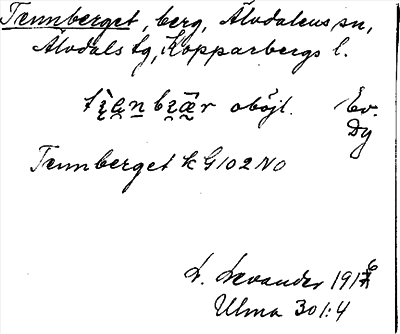 Tennberget, berg, Älvdalens sn,
Älvdals tg, Kopparbergs l.
oböjt. Ev.
Dy
Tennberget k G102NO
L. Levander 1916
Ulma 301:4